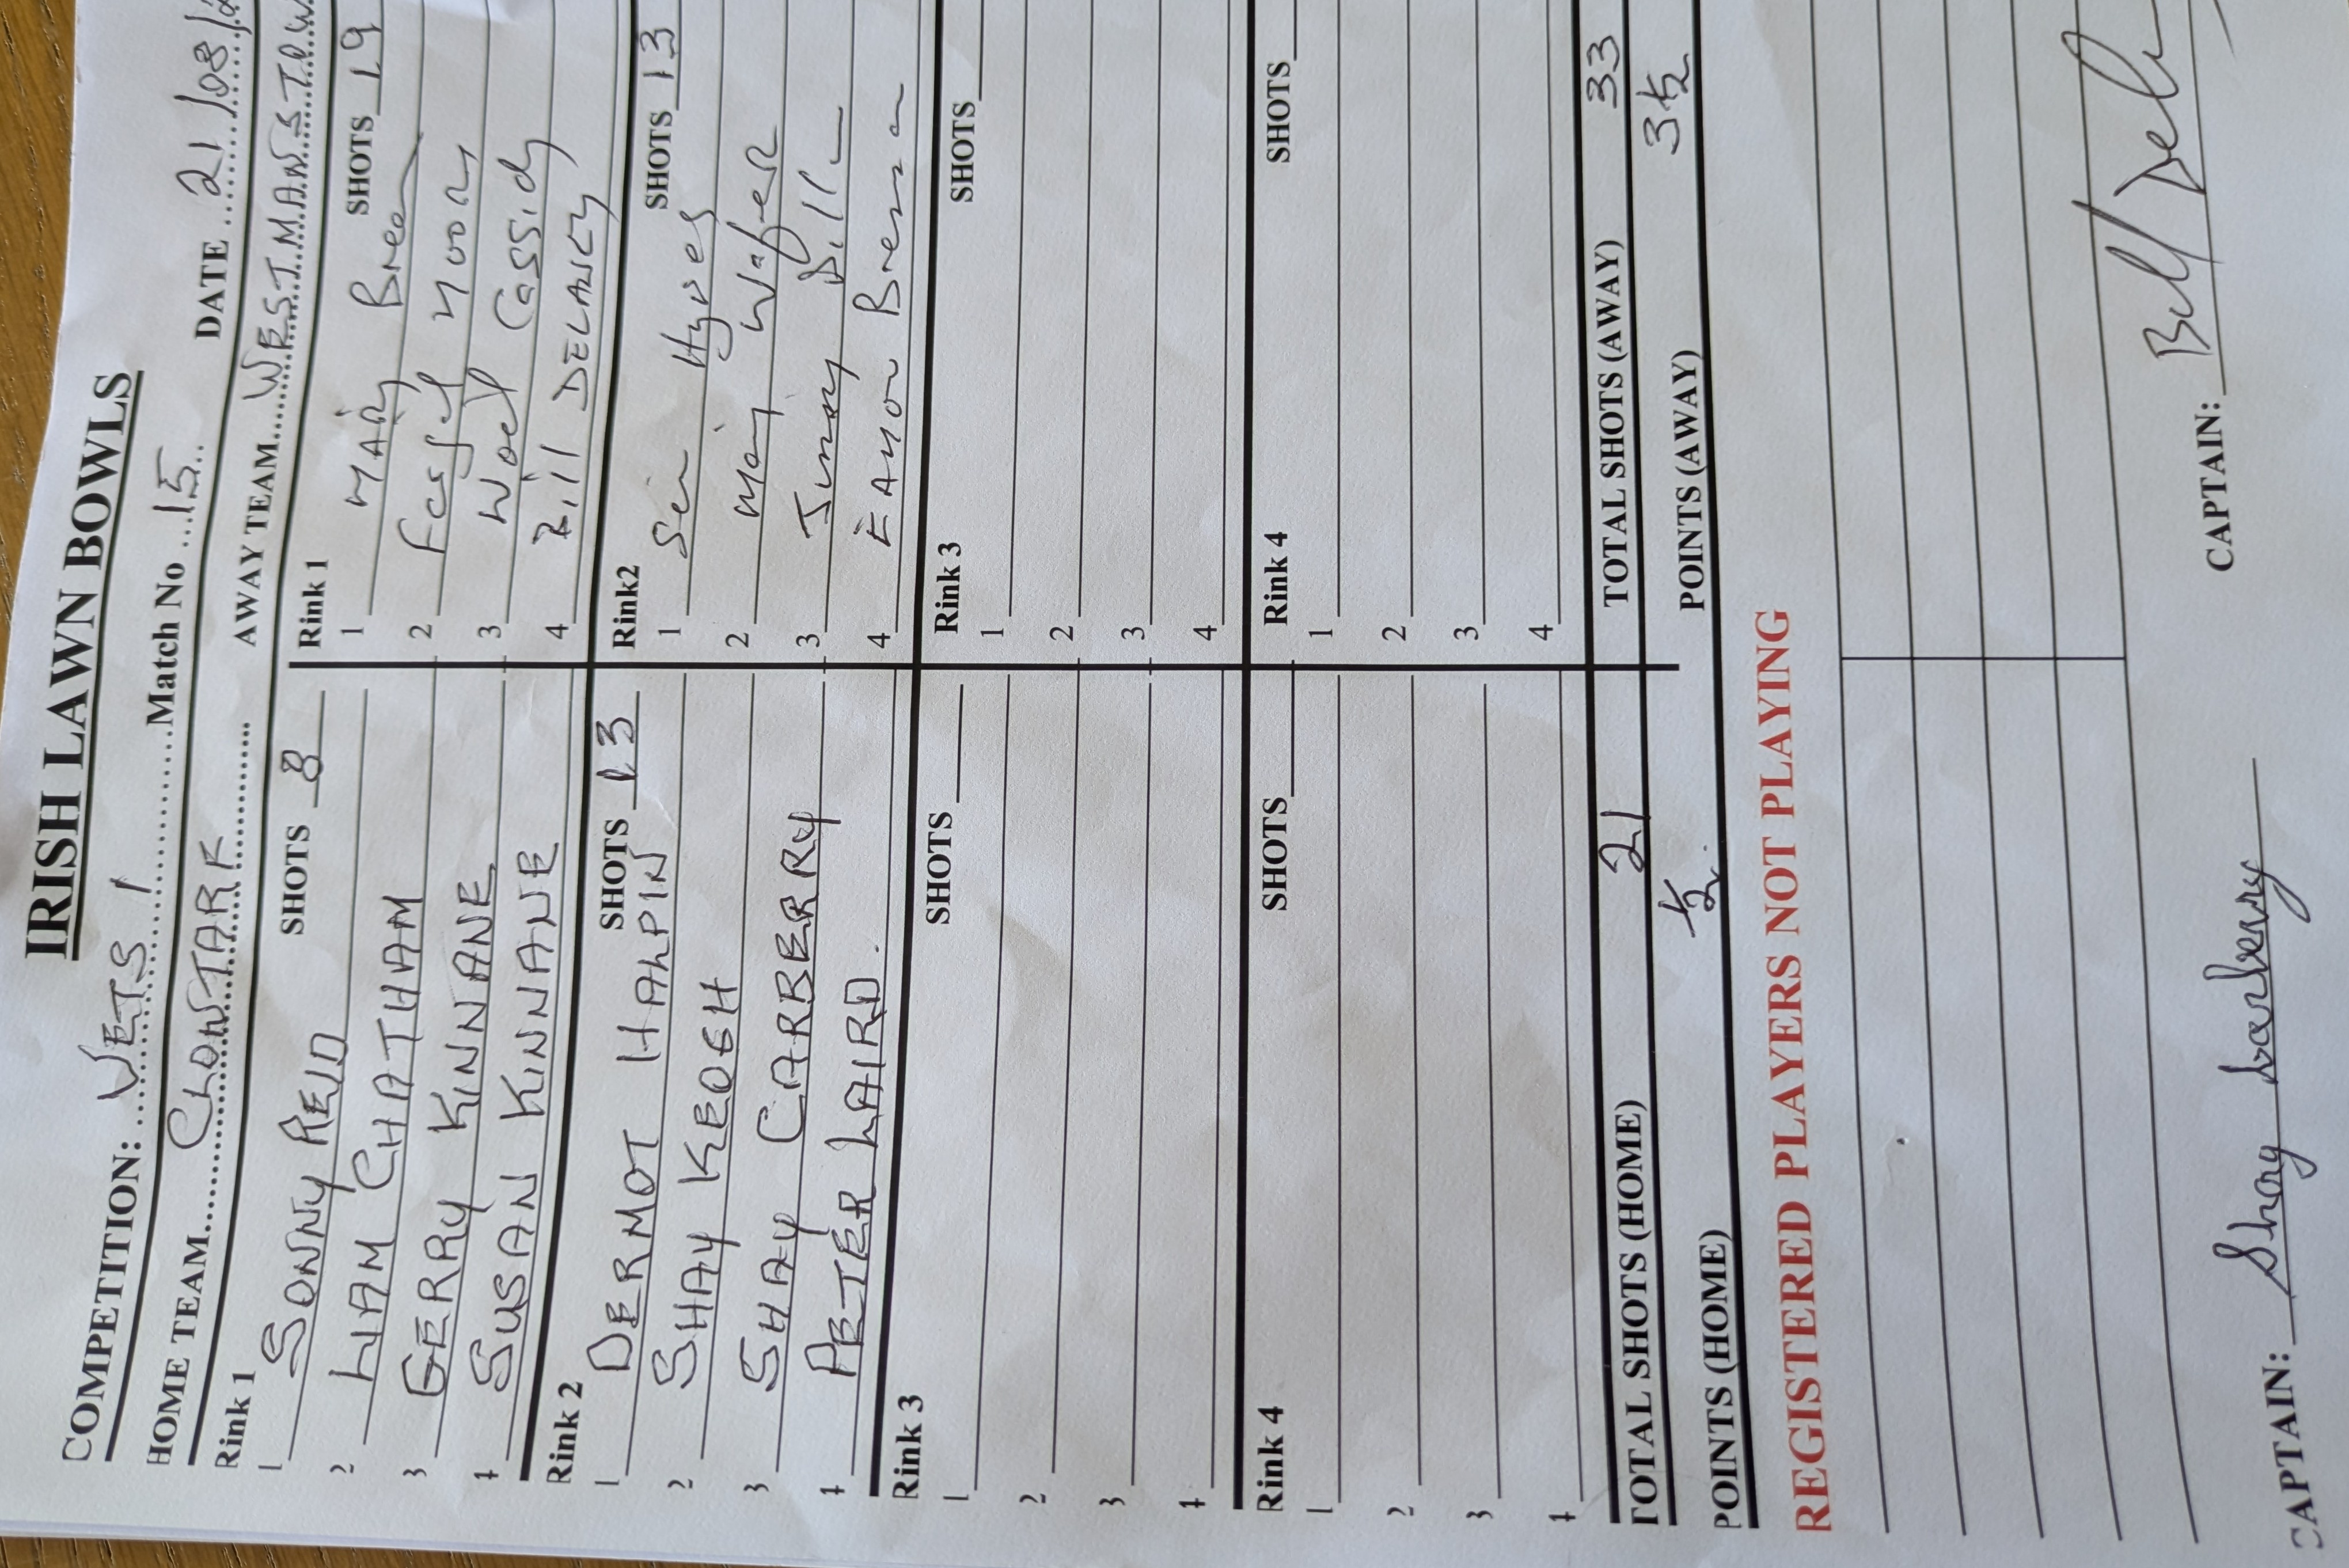 IRISH LAWN BOWLS
COMPETITION: VETS 1 Match No 15 DATE 21/08/
HOME TEAM CLONTARF AWAY TEAM WESTMANSTOW
Rink 1 SHOTS 8 Rink 1 SHOTS 19
1 SONNY REID 1 MARY Breen
2 LIAM CHATHAM 2
3 GERRY KINNANE 3 Noel Cassidy
4 SUSAN KINNANE 4 Bill DELANEY
Rink 2 SHOTS 13 Rink2 SHOTS 13
1 DERMOT HALPIN 1
2 SHAY KEOGH 2
3 SHAY CARBERRY 3 Jimmy
4 PETER LAIRD. 4 EAMON Brennan
Rink 3 SHOTS Rink 3 SHOTS
1 1
2 2
3 3
4 4
Rink 4 SHOTS Rink 4 SHOTS
1 1
2 2
3 3
4 4
TOTAL SHOTS (HOME) 21 TOTAL SHOTS (AWAY) 33
POINTS (HOME) ½ POINTS (AWAY) 3½
REGISTERED PLAYERS NOT PLAYING
CAPTAIN: Shay Carberry CAPTAIN: Bill